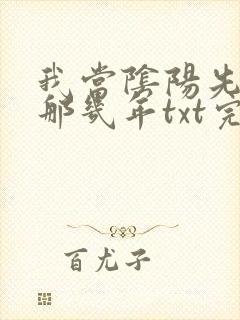 我当陰陽先
那幾年txt完
百尤子